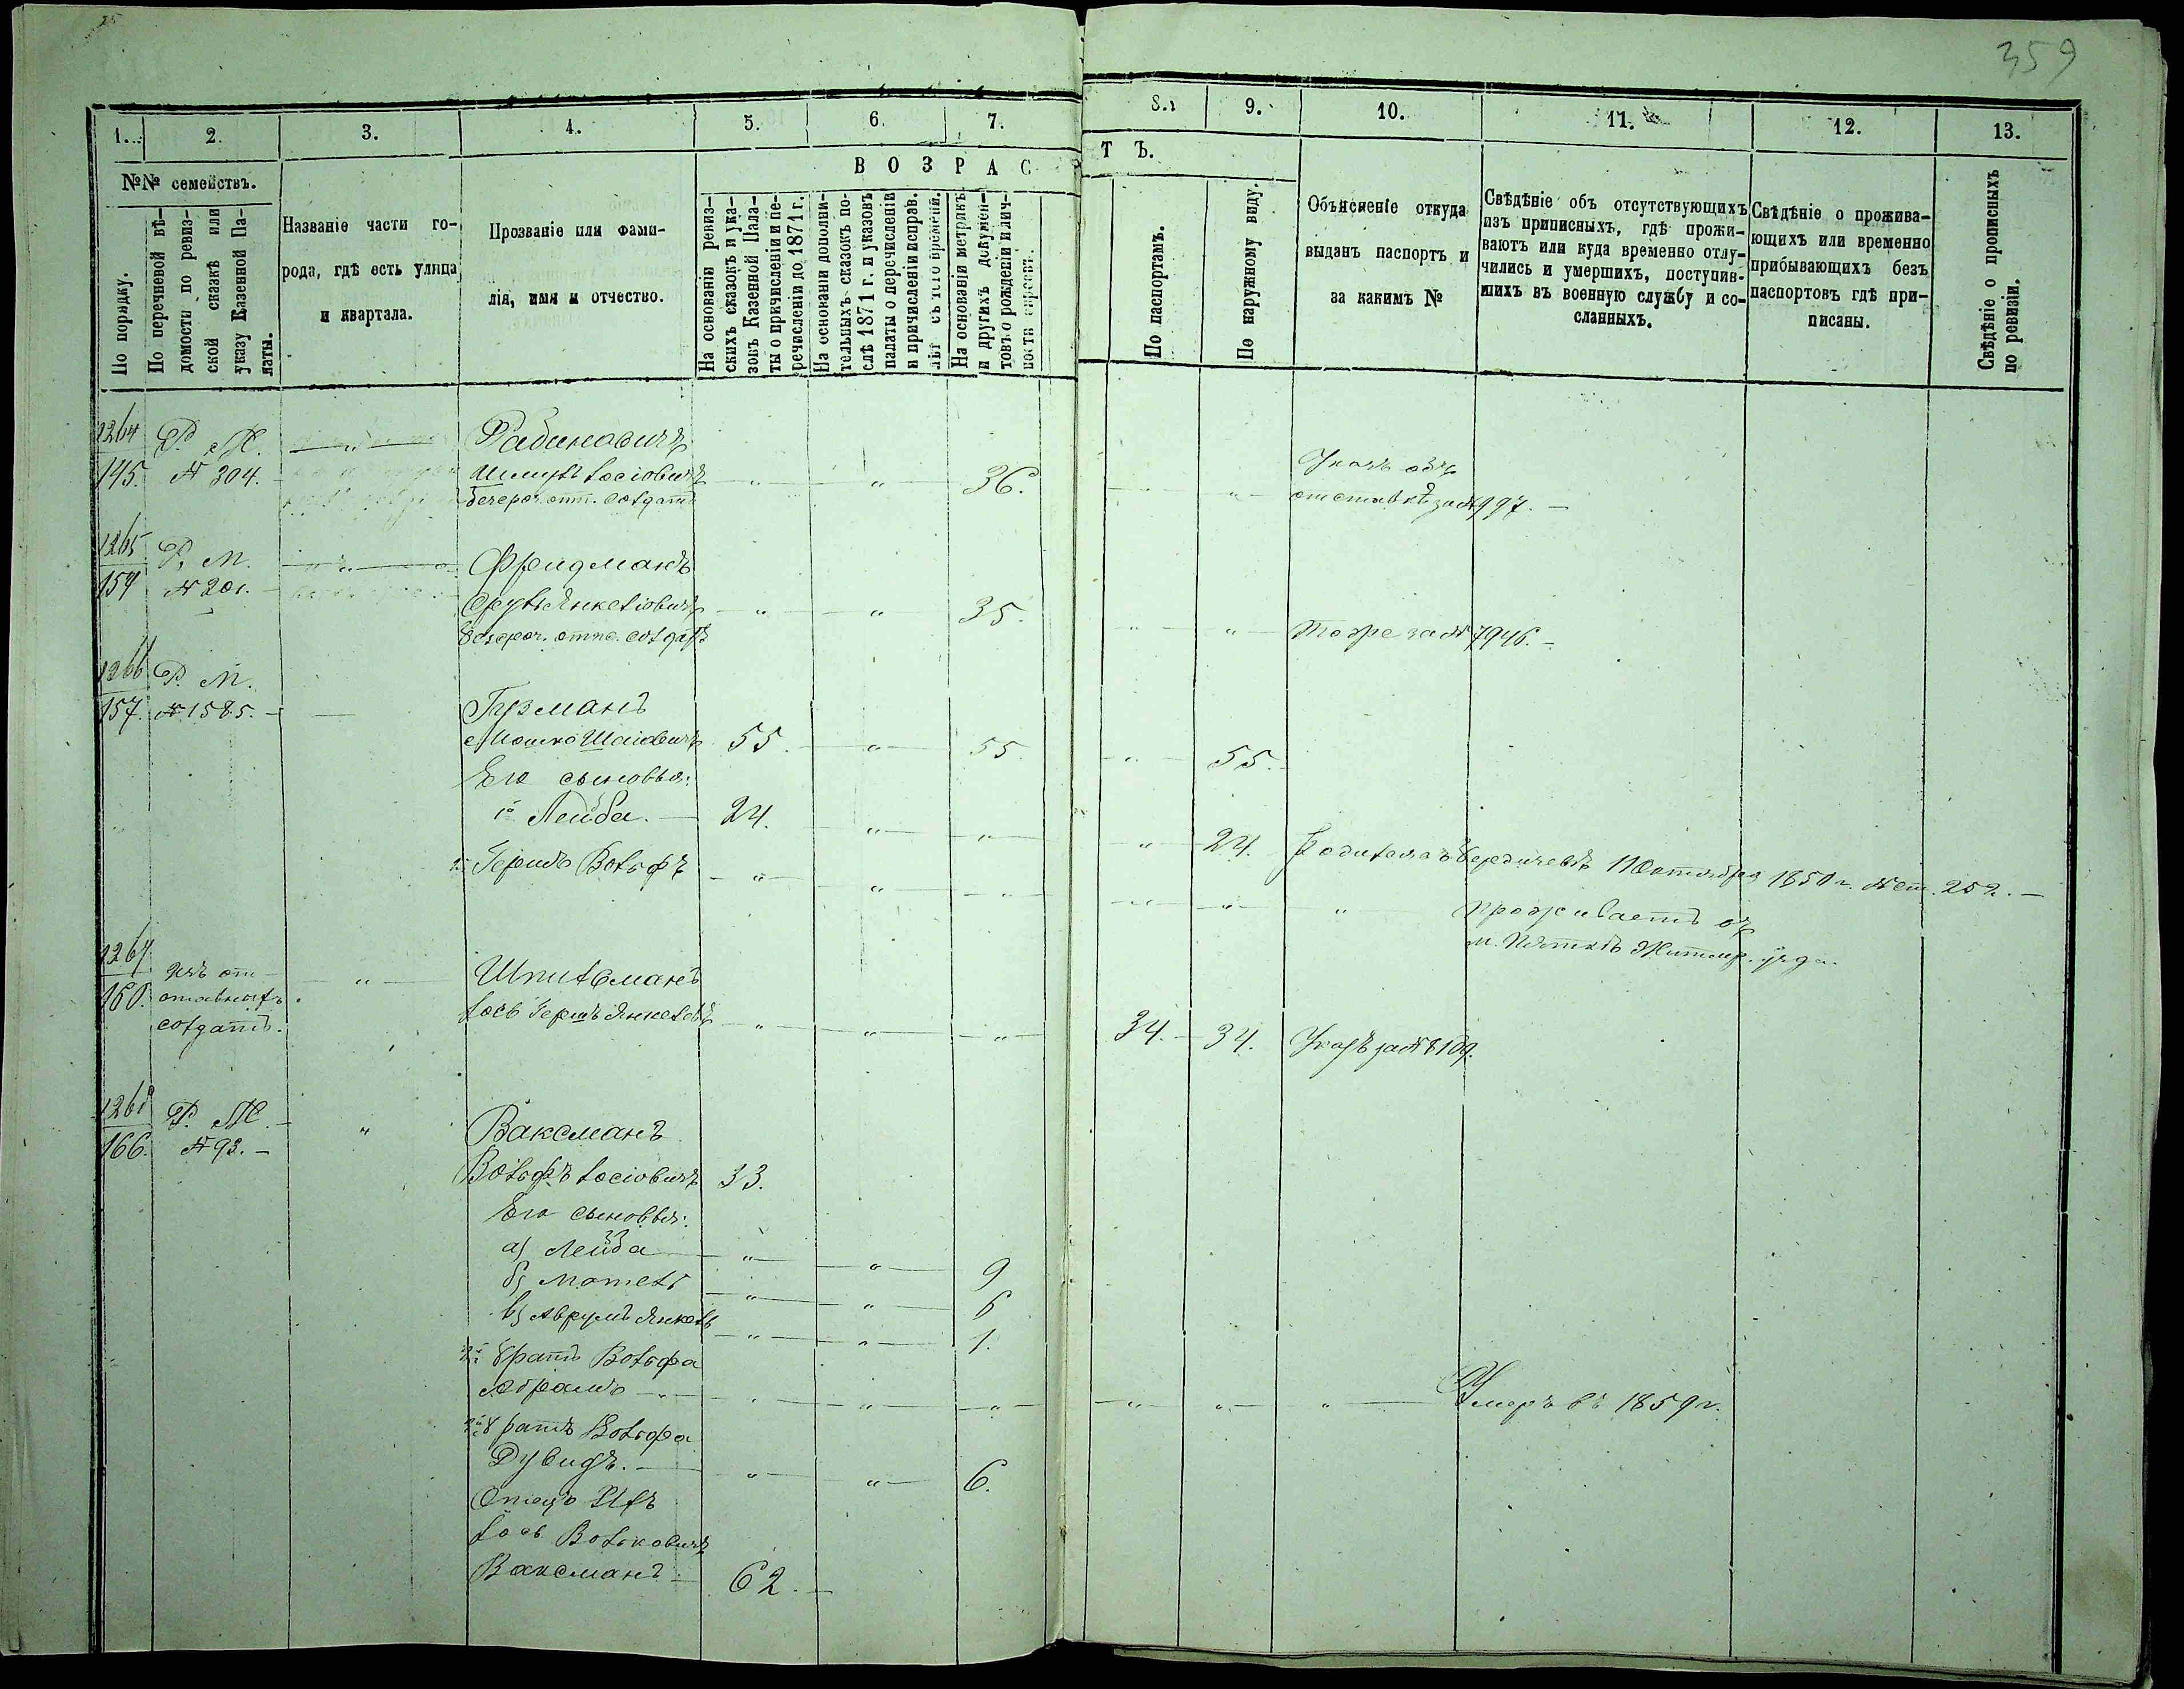 25
359
1.
2.
3.
4.
5.
6.
7.
8.
9.
10.
11.
12.
13.
ВОЗРАС
ТЪ.
№№ семействъ.
По порядку.
По перечневой вѣ-
домости по ревиз-
ской сказкѣ или
указу Казенной Па-
латы.
Названіе части го-
рода, гдѣ есть улица
и квартала.
Прозваніе или фами-
лія, имя и отчество.
На основаніи ревиз-
скихъ сказокъ и ука-
зовъ Казенной Пала-
ты о причисленіи и пе-
речисленіи до 1871 г.
На основаніи дополни-
тельныхъ сказокъ по-
слѣ 1871 г. и указовъ
палаты о перечисленіи
и причисленіи исправ.
лѣт съ того времени.
На основаніи метрикъ
и другихъ докумен-
товъ о рожденіи и лич-
ности евреевъ.
По паспортамъ.
По наружному виду.
Объясненіе откуда
выданъ паспортъ и
за какимъ №
Свѣдѣніе объ отсутствующихъ
изъ приписныхъ, гдѣ прожи-
ваютъ или куда временно отлу-
чились и умершихъ, поступив-
шихъ въ военную службу и со-
сланныхъ.
Свѣдѣніе о прожива-
ющихъ или временно
прибывающихъ безъ
паспортовъ гдѣ при-
писаны.
Свѣдѣніе о прописныхъ
по ревизіи.
1264 Р. М. — " — Рабиновичъ
145. № 304. Шмуль Іосіовичъ — " — " — 36. — " — Указъ объ
безсроч. отп. солдатъ отставкѣ за № 997. —
1265 Р. М. — " — Фридманъ
154 № 201. — Срулъ Янкеліовичъ — " — " — 35. " — " — Тоже за № 7946. —
безсроч. отп. солдатъ
1266 Р. М.
157. № 1585. — — Гузманъ
Мошко Шаіовичъ 55. — " — 55. — " — 55.
Его сыновья:
1й Лейба. — 24. — " — " — " — 24. Родился въ Бердичевѣ 1 Октября 1850 г. № ст. 252. —
2й Гершъ Вольфъ — " — " — " — " — " — " — проживаетъ въ
м. Пяткѣ Житомир. уѣзда.
1267 Изъ от- — " — Шпильманъ
160. ставныхъ Іось Гершъ Янкелевъ — " — " — " — 34. — 34. Указъ за № 8109.
солдатъ.
1268 Р. М. — " Ваксманъ
166. № 93. —
Вольфъ Іосіовичъ 33.
Его сыновья:
а) Лейба — " — " — 9
б) Мотель — " — " — 6
в) Аврумъ Янкель — " — " — 1.
2й братъ Вольфа
Абрамъ — " — " — " — " — " — " — Умеръ въ 1859 г.
3й братъ Вольфа
Дувидъ. — " — " — 6.
Отецъ Ихъ
Іось Вольковичъ
Ваксманъ — 62. —